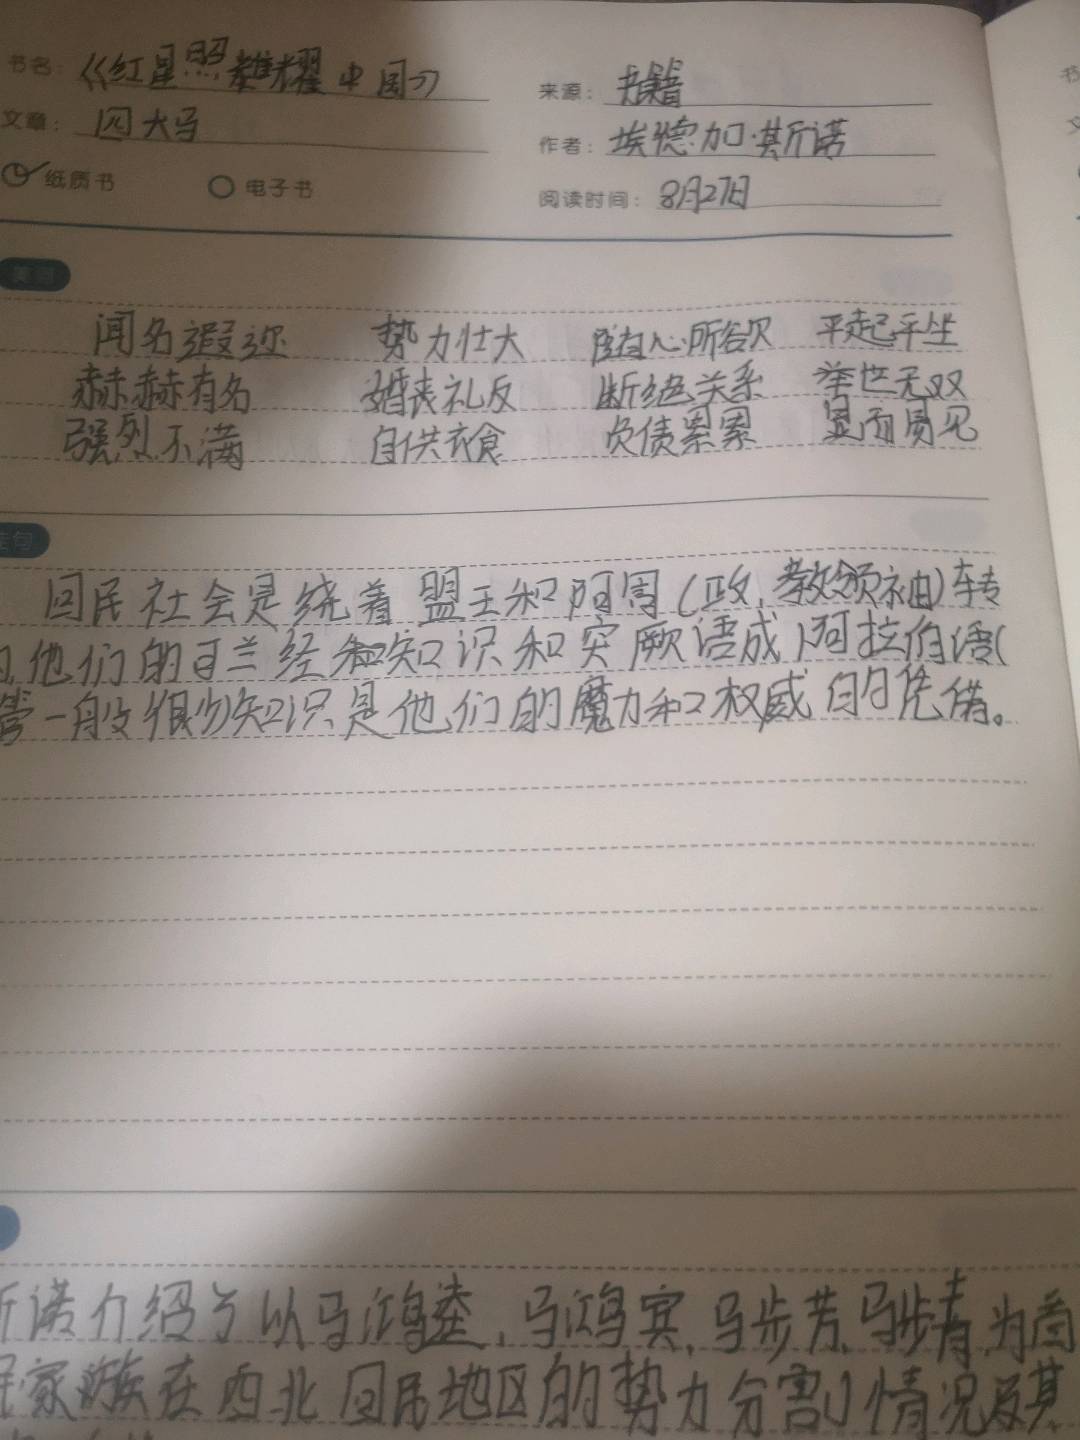 书名：《红星照耀中国》
来源：书籍
文章：四大马
作者：埃德加·斯诺
纸质书 电子书
阅读时间：8月27日
闻名遐迩 势力壮大 随心所欲 平起平坐
赫赫有名 婚丧礼反 断绝关系 举世无双
强烈不满 自供衣食 负债累累 显而易见
佳句
回民社会是绕着盟主和阿訇（政，教领袖）转
，他们的可兰经知识和突厥语成阿拉伯语（
管一般很少知识是他们的魔力和权威的凭借。
斯诺介绍了以马鸿逵，马鸿宾，马步芳，马步青，为首
家族在西北回民地区的势力分割情况及其